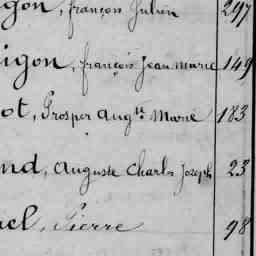 gon, françois Julien 297
igon, françois Jean marie 149
ot, Prosper Aug.te Marie 183
nd, Auguste Charles Joseph 23
el, Pierre 98